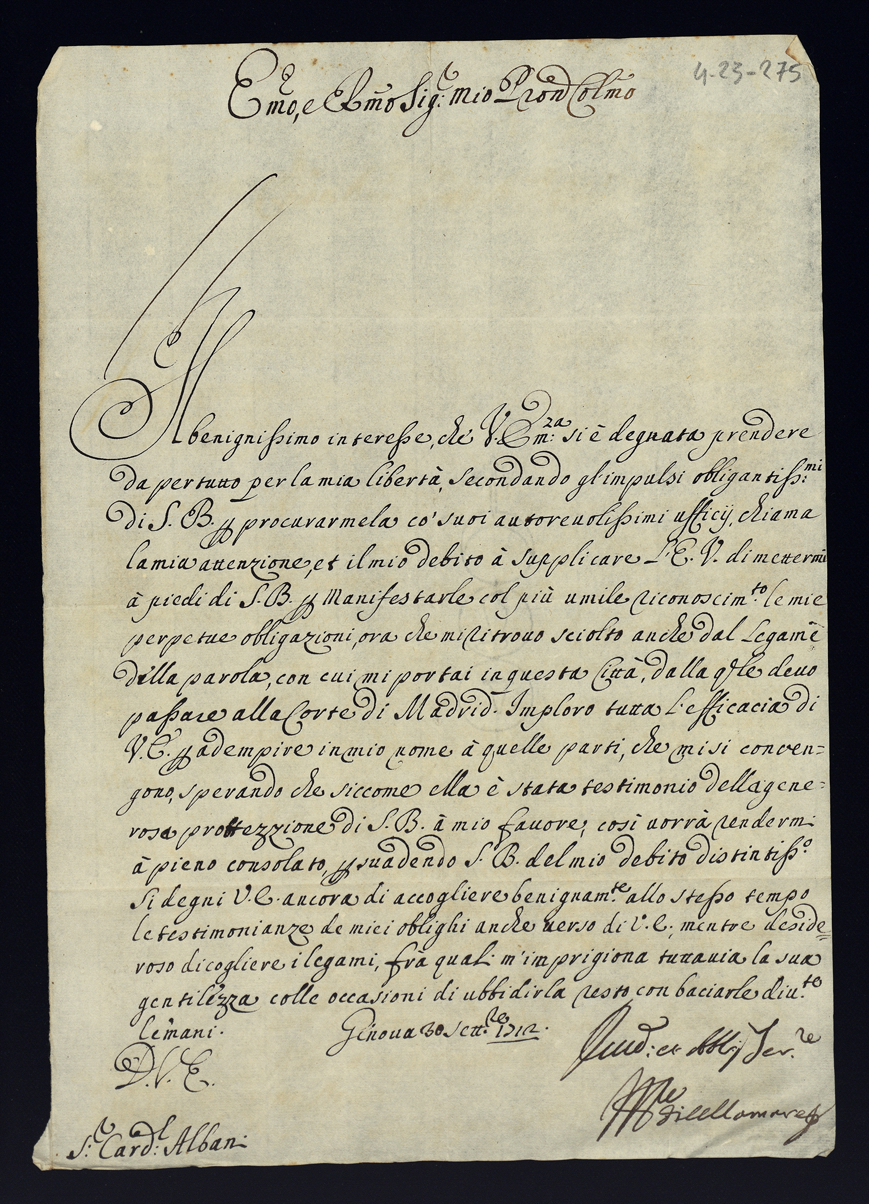 4-23-275
Emo, e Rmo Sig.r mio Pron Colmo
Il benignissimo interesse, che V. Em.za si è degnata prendere
da per tutto per la mia libertà, secondando gl'impulsi obligantiss.mi
di S. B. p procurarmela co' suoi autorevolissimi ufficij, chiama
la mia attenzione, et il mio debito à supplicare L'E. V. di mettermi
à piedi di S. B. p Manifestarle col più umile riconoscim.to le mie
perpetue obligazioni, ora che mi ritrovo sciolto anche dal Legame
della parola, con cui mi portai in questa Città, dalla qle devo
passare alla Corte di Madrid. Imploro tutta L'efficacia di
V. E. p adempire in mio nome à quelle parti, che mi si conven=
gono, sperando che siccome ella è stata testimonio della gene=
rosa protezzione di S. B. à mio favore, così vorrà rendermi
à pieno consolato, psuadendo S. B. del mio debito distintiss.o
Si degni V. E. ancora di accogliere benignam.te allo stesso tempo
le testimonianze de miei oblighi anche verso di V. E., mentre deside=
roso di cogliere i legami, frà quali m'imprigiona tuttavia la sua
gentilezza colle occasioni di ubbidirla resto, con baciarle diu.to
le mani.
Genova 30 Sett.re 1712.
D. V. E.
Ser.re
di Cellamare
S.r Card.l Albani